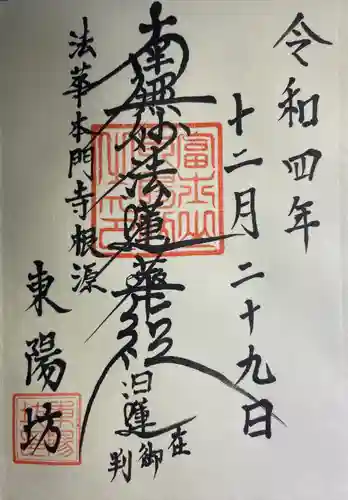 令和四年
十二月二十九日
南無妙法蓮華経
日蓮
在御判
法華本門寺根源
東陽坊